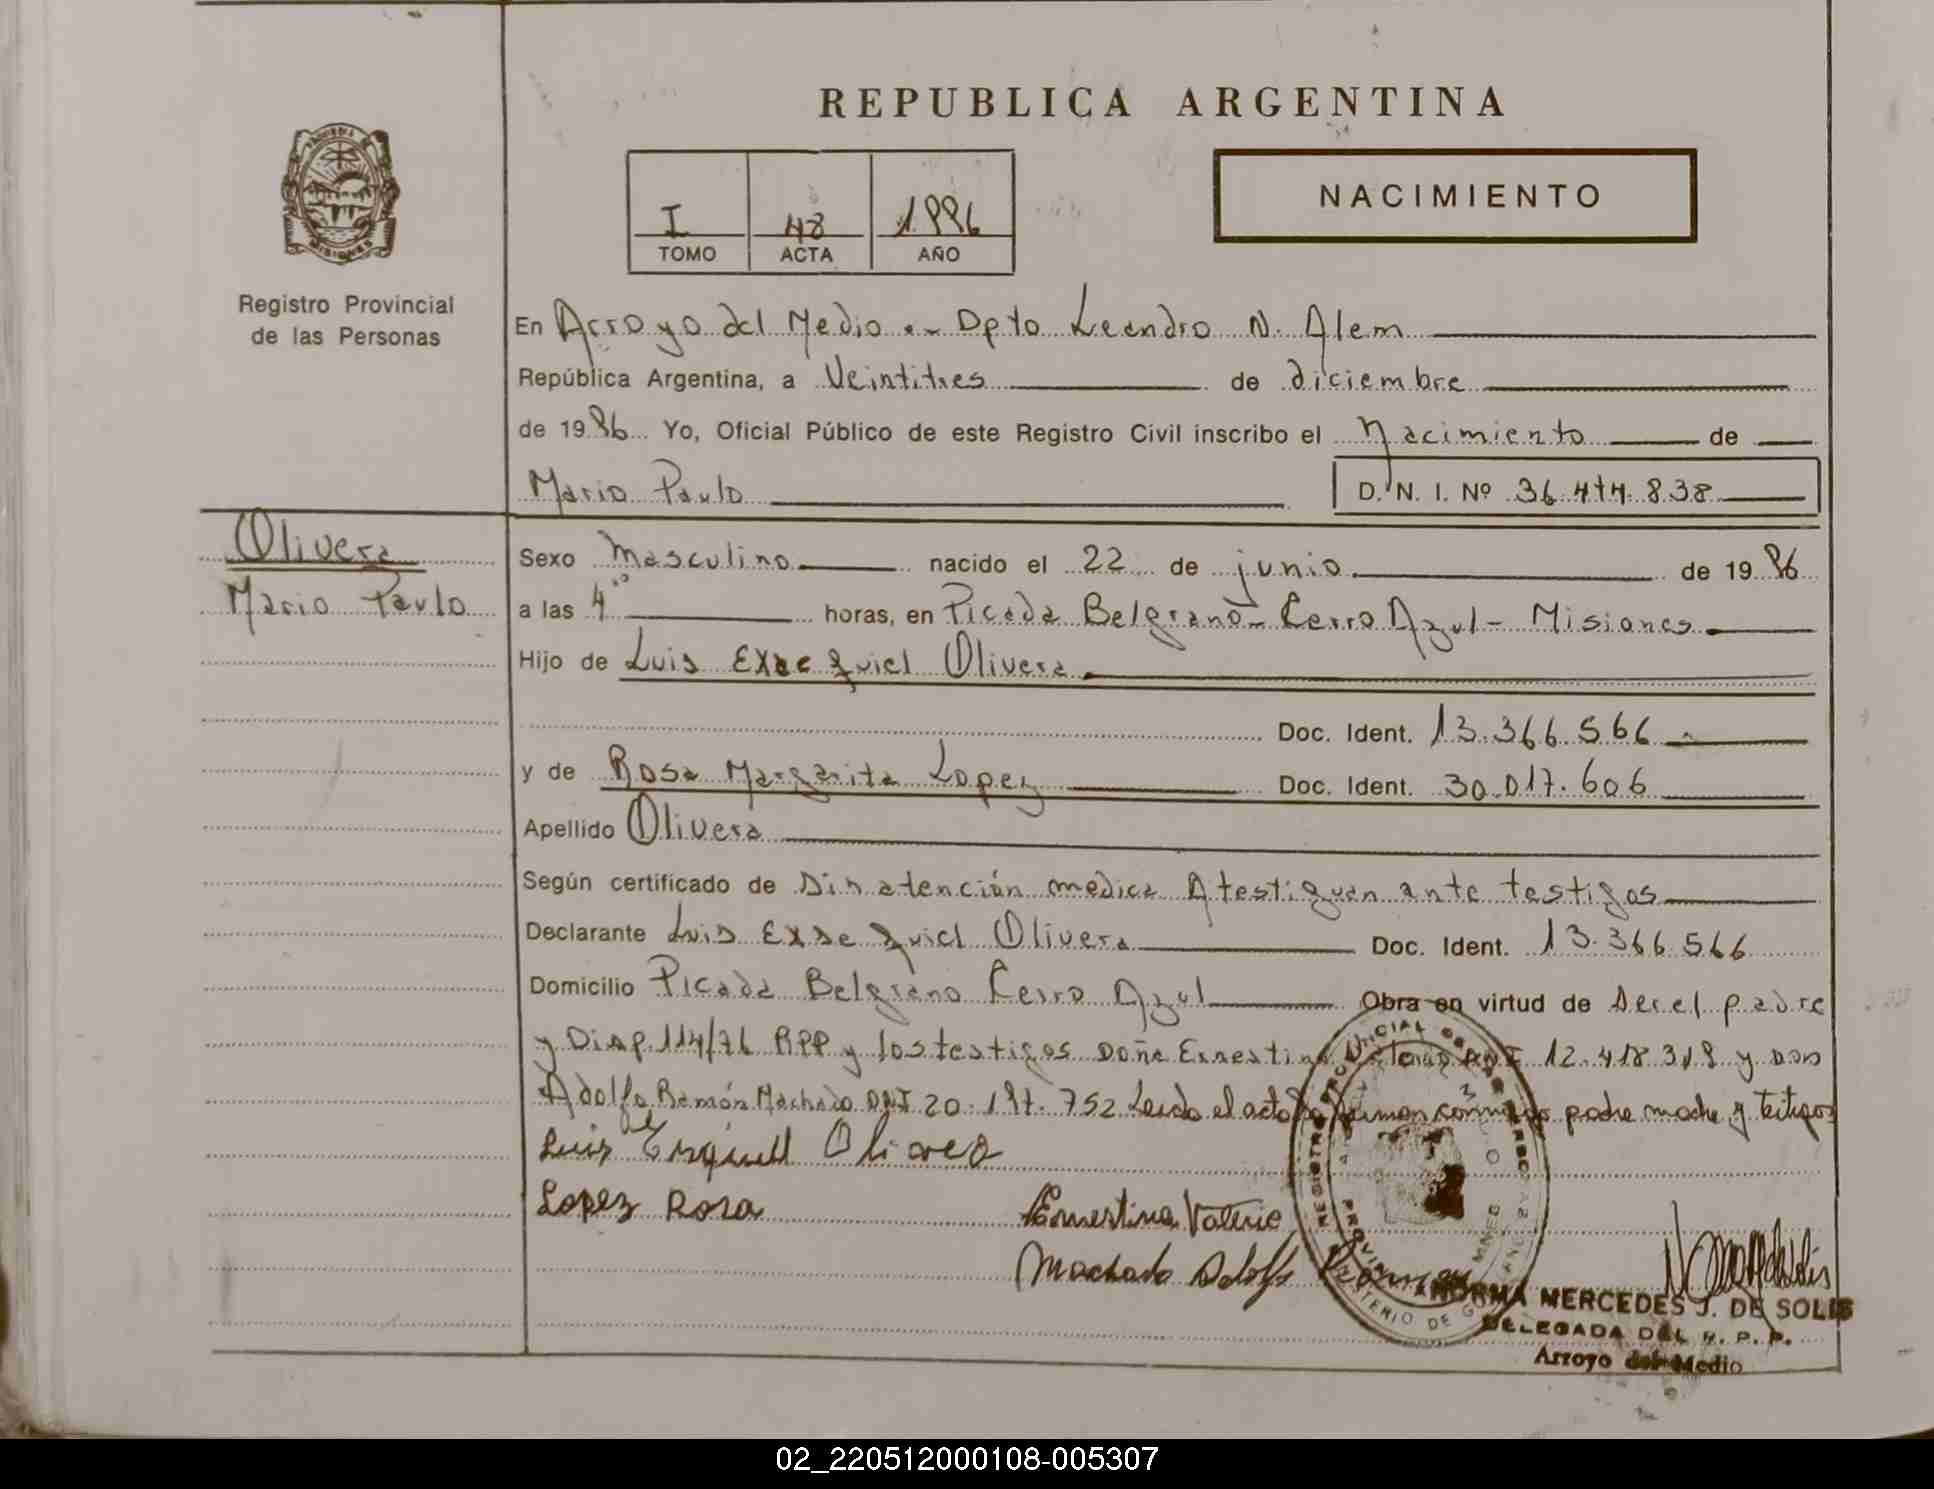 REPUBLICA ARGENTINA
NACIMIENTO
I 48 1.996
TOMO ACTA AÑO
MISIONES
Registro Provincial
de las Personas
En Arroyo del Medio - Dpto Leandro N. Alem
República Argentina, a Veintitres de diciembre
de 1996 Yo, Oficial Público de este Registro Civil inscribo el Nacimiento de
Mario Paulo D. N. I. Nº 36.474.838
Olivera
Mario Paulo
Sexo Masculino nacido el 22 de junio de 1996
a las 4ºº horas, en Picada Belgrano - Cerro Azul - Misiones
Hijo de Luis Exaequiel Olivera
Doc. Ident. 13.366.566
y de Rosa Margarita Lopez Doc. Ident. 30.017.606
Apellido Olivera
Según certificado de Sin atención medica Atestiguan ante testigos
Declarante Luis Exaequiel Olivera Doc. Ident. 13.366.566
Domicilio Picada Belgrano Cerro Azul Obra en virtud de Ser el padre
y Disp. 114/76 RPP y los testigos Doña Ernestina DNI 12.418.319 y Don
Adolfo Ramón Machado DNI 20.197.752 Leido el acta firman conmigo padre madre y testigos
Luis Olivera
Lopez Rosa Ernestina Valerio
Machado Adolfo Ramon
NORMA MERCEDES J. DE SOLIS
DELEGADA DEL R. P. P.
Arroyo del Medio
02_220512000108-005307